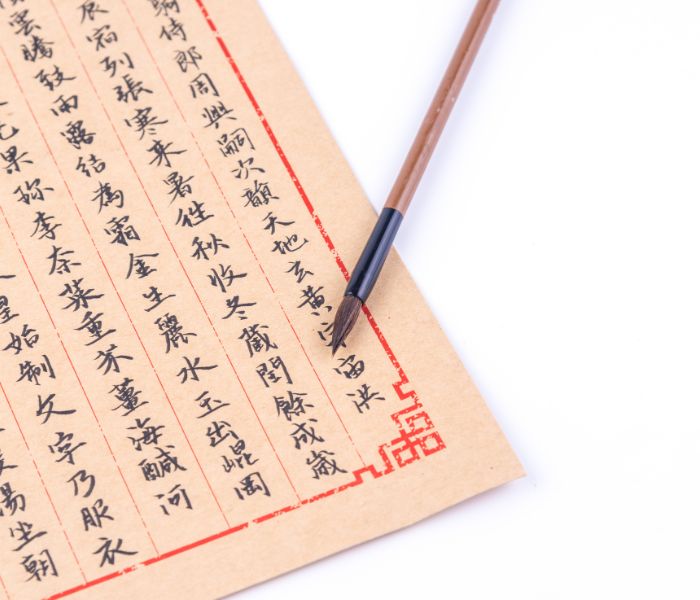 騎侍郎周興嗣次韻天地玄黃宙洪
辰宿列張寒来暑徃秋收冬藏閏餘成歲
雲騰致雨露結為霜金生麗水玉出崐岡
果珍李奈菜重芥薑海鹹河
皇始制文字乃服衣
湯坐朝